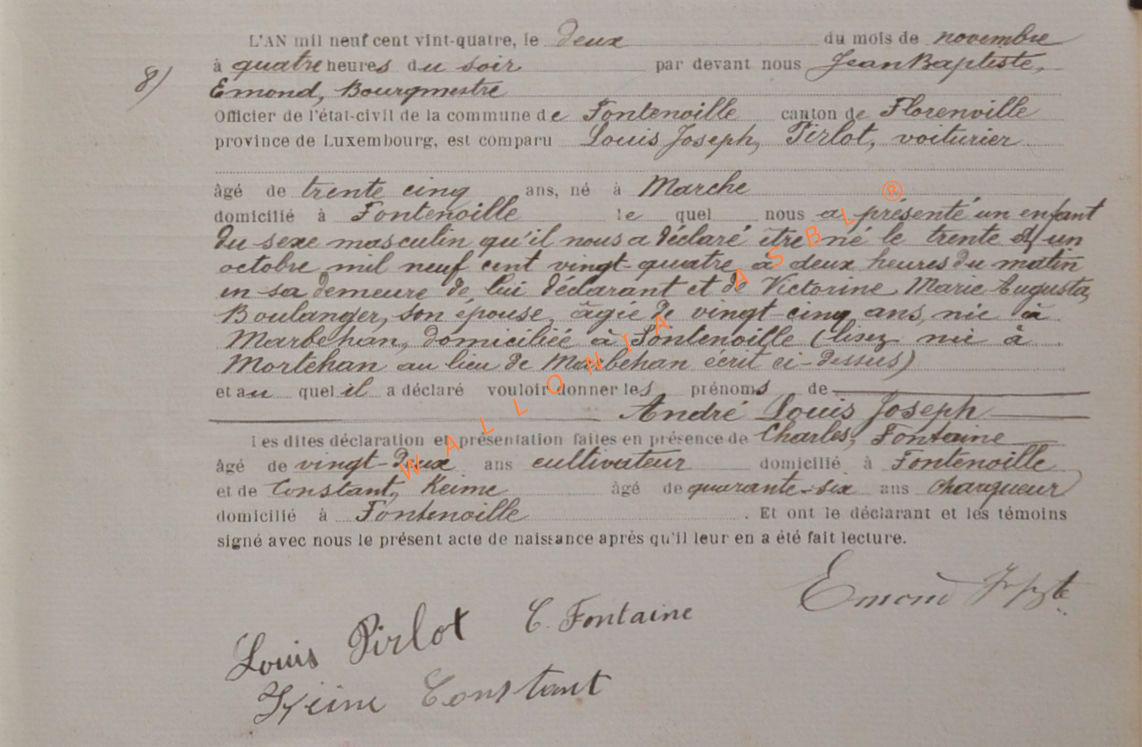 L'AN mil neuf cent vint-quatre, le deux du mois de novembre
8) à quatre heures du soir par devant nous Jean Baptiste,
Emond, Bourgmestre
Officier de l'état-civil de la commune de Fontenoille canton de Florenville
province de Luxembourg, est comparu Louis Joseph, Pirlot, voiturier
âgé de trente cinq ans, né à Marche
domicilié à Fontenoille le quel nous a présenté un enfant
du sexe masculin qu'il nous a déclaré être né le trente et un
octobre mil neuf cent vingt-quatre à deux heures du matin
en sa demeure de lui déclarant et de Victorine Marie Augusta,
Boulanger, son épouse, âgée de vingt-cinq ans, née à
Marbehan, domiciliée à Fontenoille (lisez née à
Mortehan au lieu de Marbehan écrit ci-dessus)
et au quel il a déclaré vouloir donner les prénoms de
André Louis Joseph
Les dites déclaration et présentation faites en présence de Charles, Fontaine
âgé de vingt-deux ans cultivateur domicilié à Fontenoille
et de Constant, Keime âgé de quarante-six ans
domicilié à Fontenoille. Et ont le déclarant et les témoins
signé avec nous le présent acte de naissance après qu'il leur en a été fait lecture.
Emond
Louis Pirlot C. Fontaine
Keime Constant
WALLONIA ASBL ®